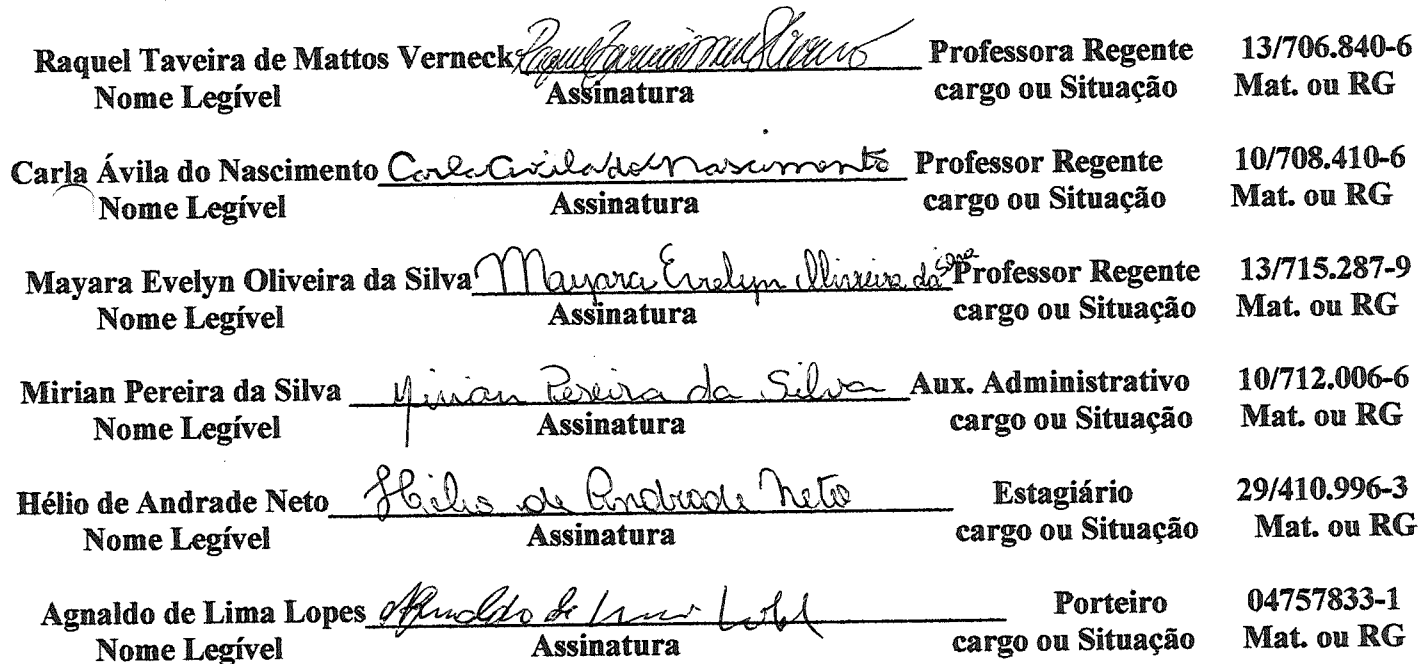 Raquel Taveira de Mattos Verneck Professora Regente 13/706.840-6
Nome Legível Assinatura cargo ou Situação Mat. ou RG
Carla Ávila do Nascimento Carla Avila do Nascimento Professor Regente 10/708.410-6
Nome Legível Assinatura cargo ou Situação Mat. ou RG
Mayara Evelyn Oliveira da Silva Mayara Evelyn Oliveira da Silva Professor Regente 13/715.287-9
Nome Legível Assinatura cargo ou Situação Mat. ou RG
Mirian Pereira da Silva Mirian Pereira da Silva Aux. Administrativo 10/712.006-6
Nome Legível Assinatura cargo ou Situação Mat. ou RG
Hélio de Andrade Neto Hélio de Andrade Neto Estagiário 29/410.996-3
Nome Legível Assinatura cargo ou Situação Mat. ou RG
Agnaldo de Lima Lopes Porteiro 04757833-1
Nome Legível Assinatura cargo ou Situação Mat. ou RG